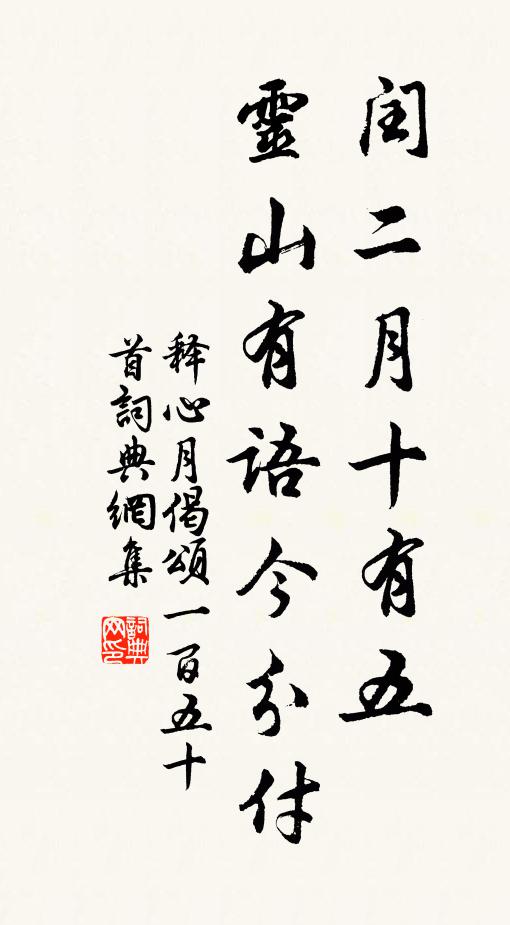 閏二月十有五
靈山有語今分付
释心月偈頌一百五十
首詞典網集
詞典网印